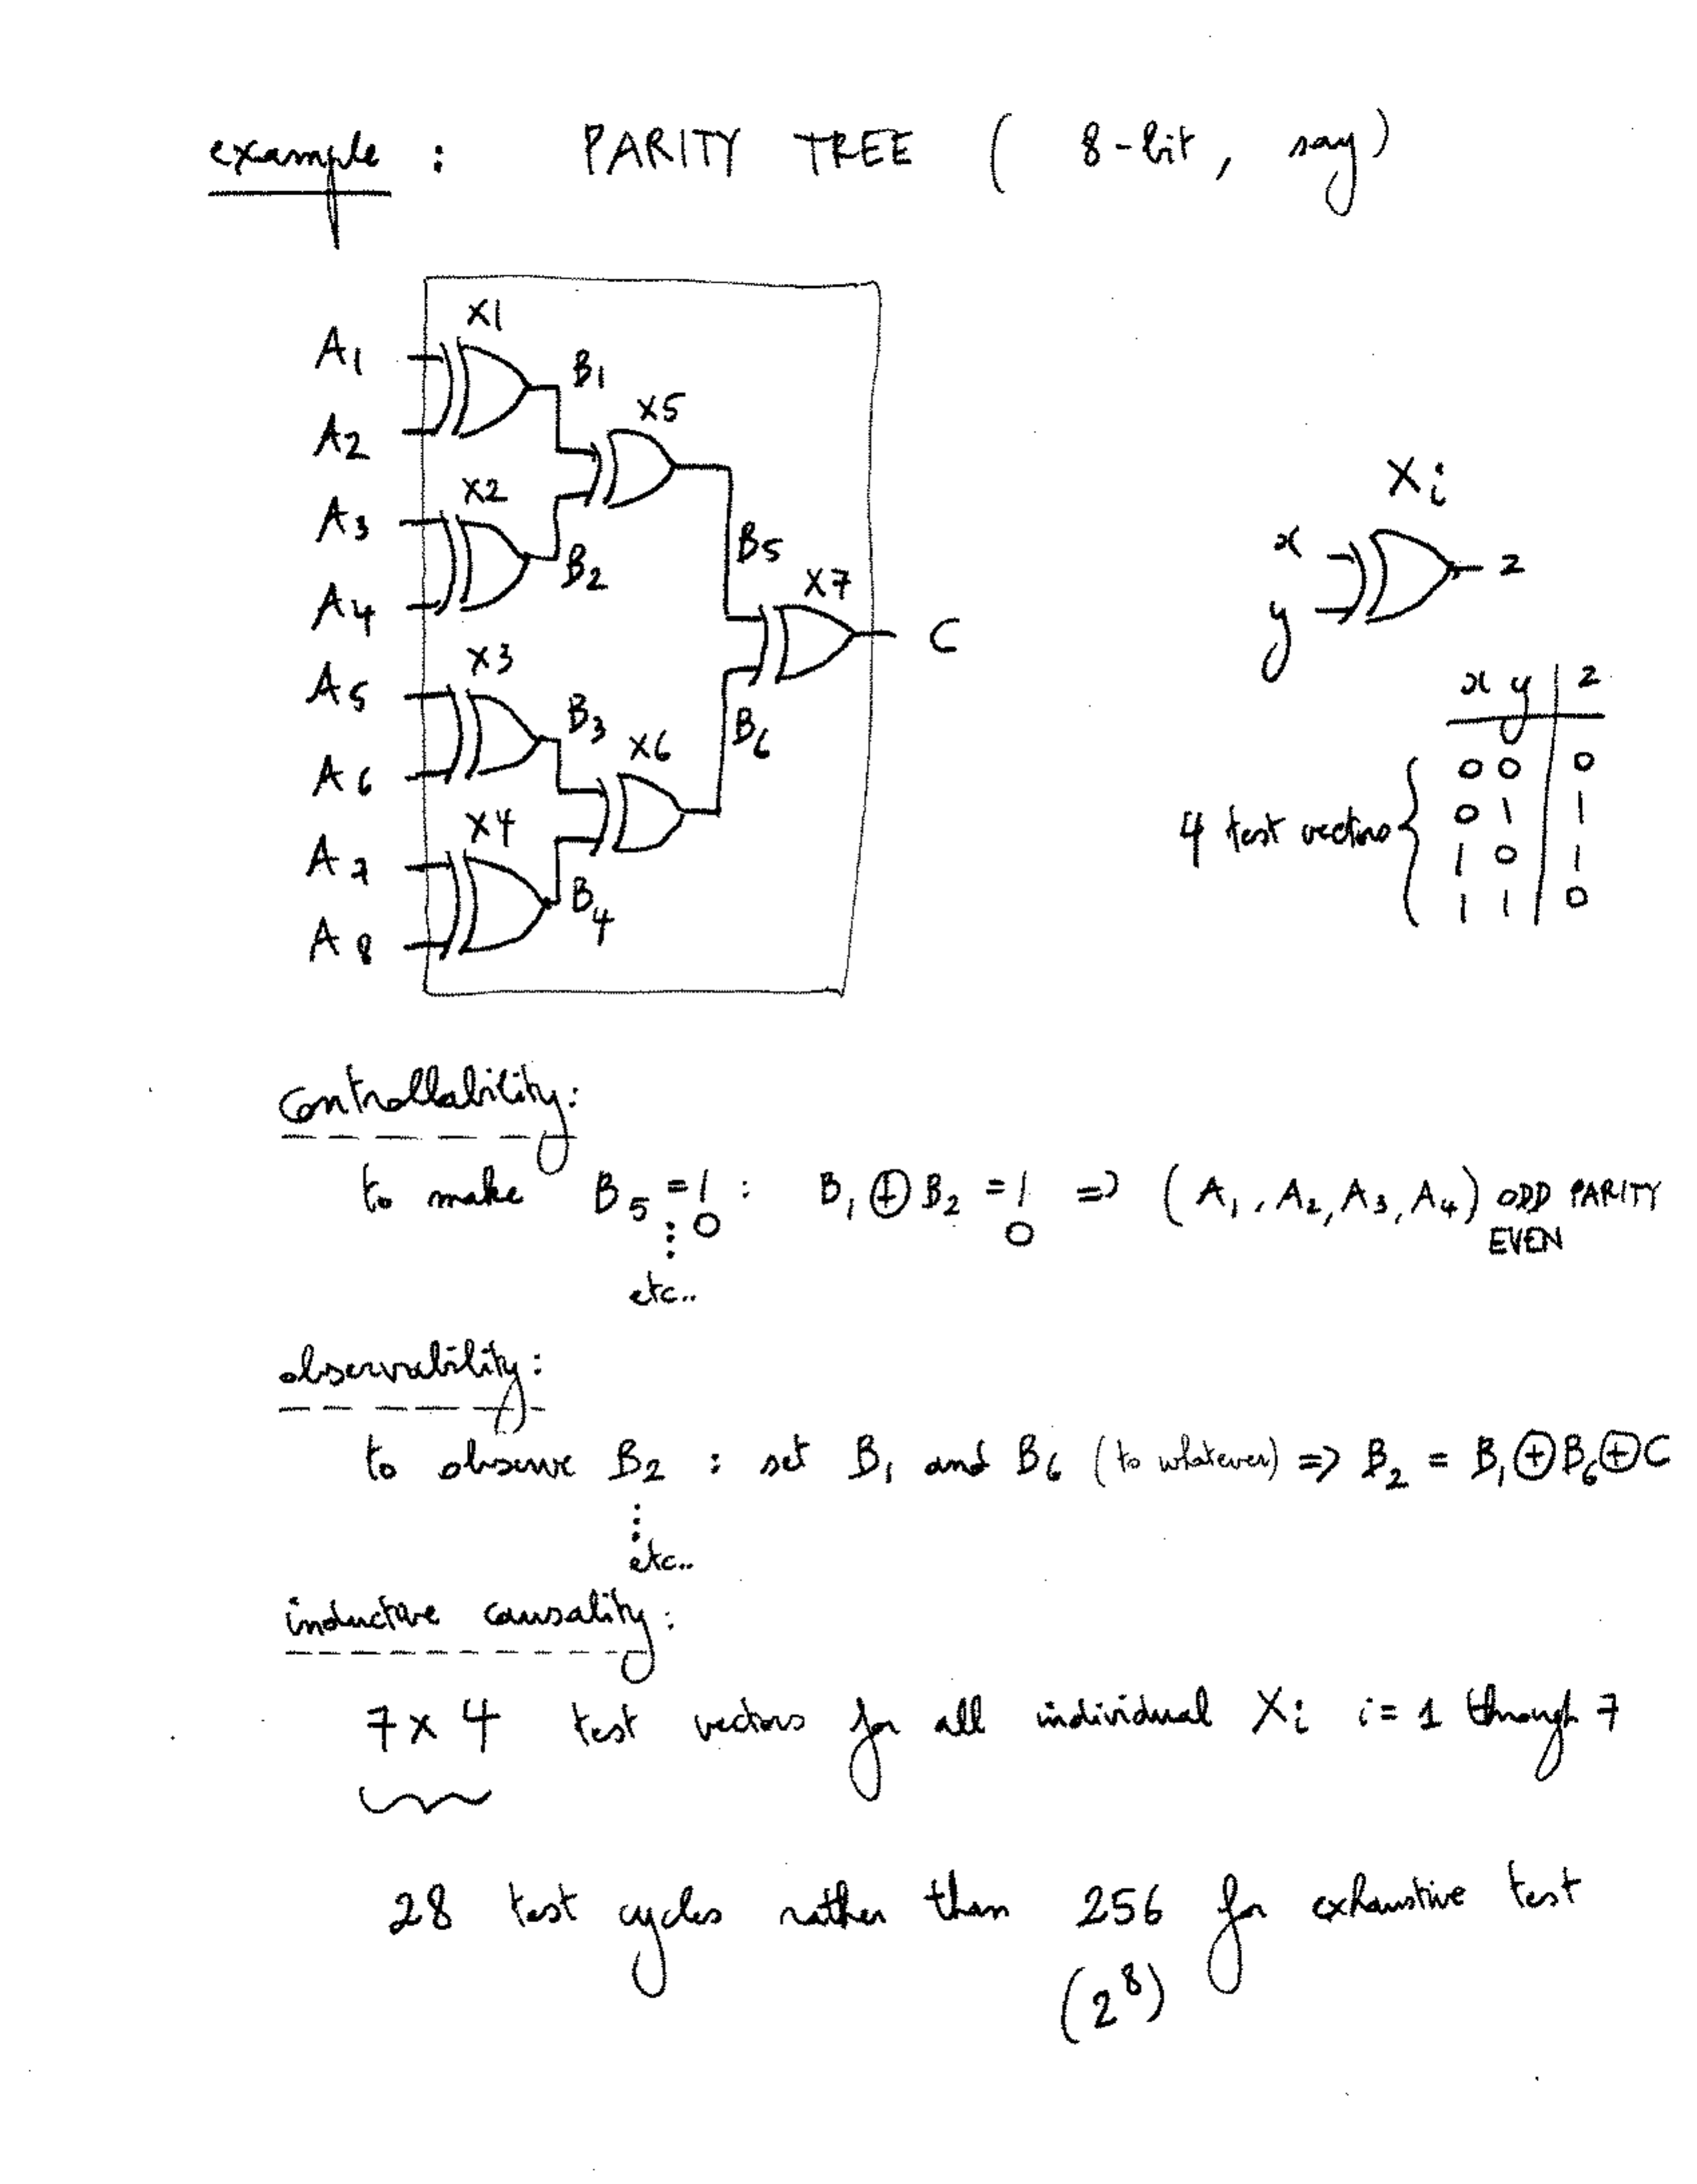 example : PARITY TREE ( 8-bit, say)
X1
A1
B1
X5
A2
X2
A3
B2
B5
A4
X7
C
X3
A5
B3
B6
X6
A6
X4
A7
B4
A8
Xi
x
z
y
x y z
0 0 0
0 1 1
4 test vectors
1 0 1
1 1 0
controllability:
to make B5 = 1 : B1 ⊕ B2 = 1 => (A1, A2, A3, A4) ODD PARITY
0 0 EVEN
etc..
observability:
to observe B2 : set B1 and B6 (to whatever) => B2 = B1 ⊕ B6 ⊕ C
etc..
inductive causality:
7 x 4 test vectors for all individual Xi i = 1 through 7
28 test cycles rather than 256 for exhaustive test
(2^8)